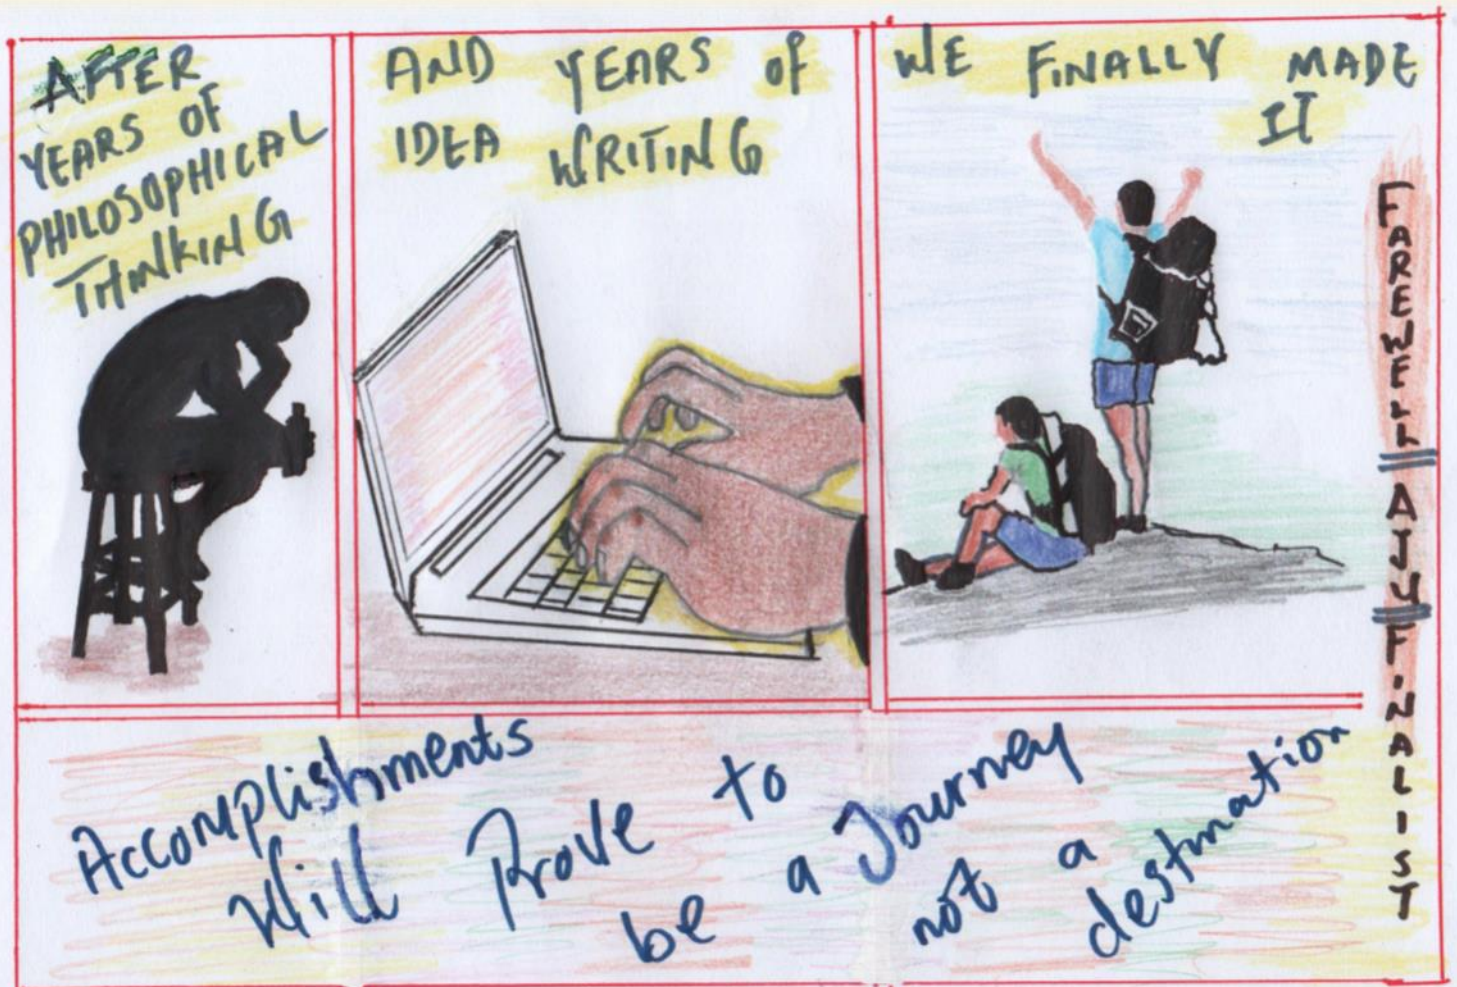 AFTER
YEARS OF
PHILOSOPHICAL
THINKING
AND YEARS OF
IDEA WRITING
WE FINALLY MADE
IT
FAREWELL AJU FINALIST
Accomplishments
Will Prove to
be a Journey
not a
destination